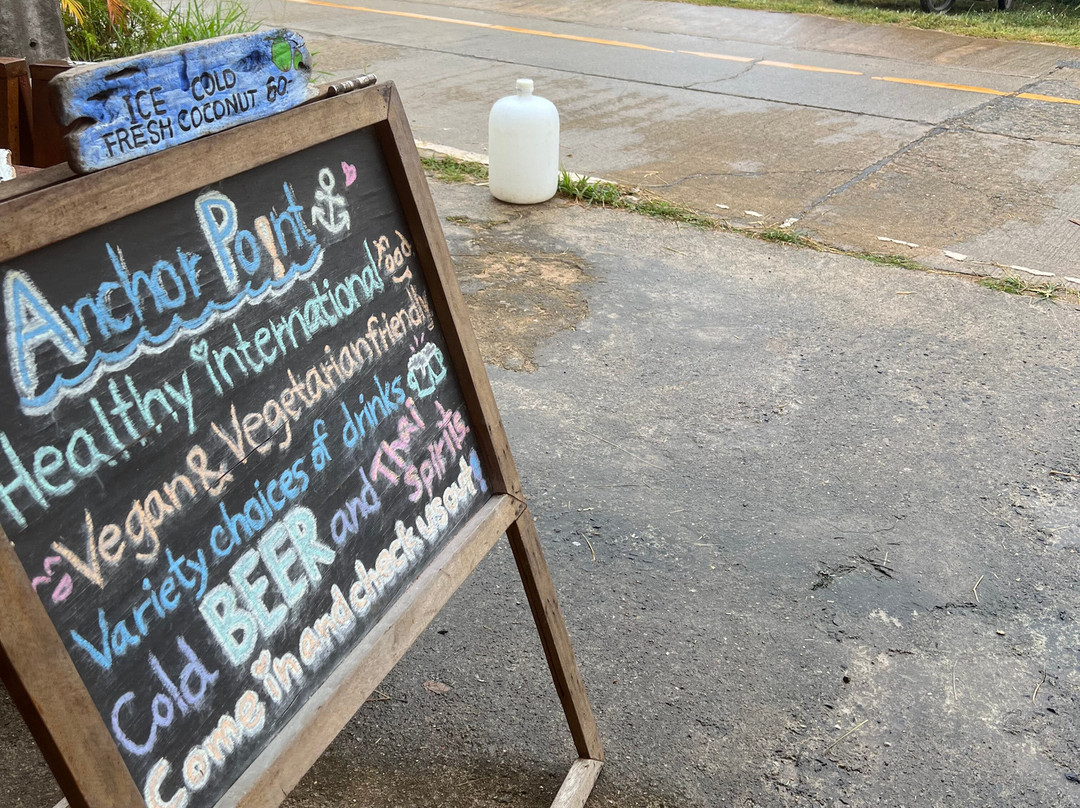 ICE COLD
FRESH COCONUT 60.-
Anchor Point
Healthy international food
Vegan & Vegetarian friendly
Variety choices of drinks
Cold BEER and Thai spirits
Come in and check us out!